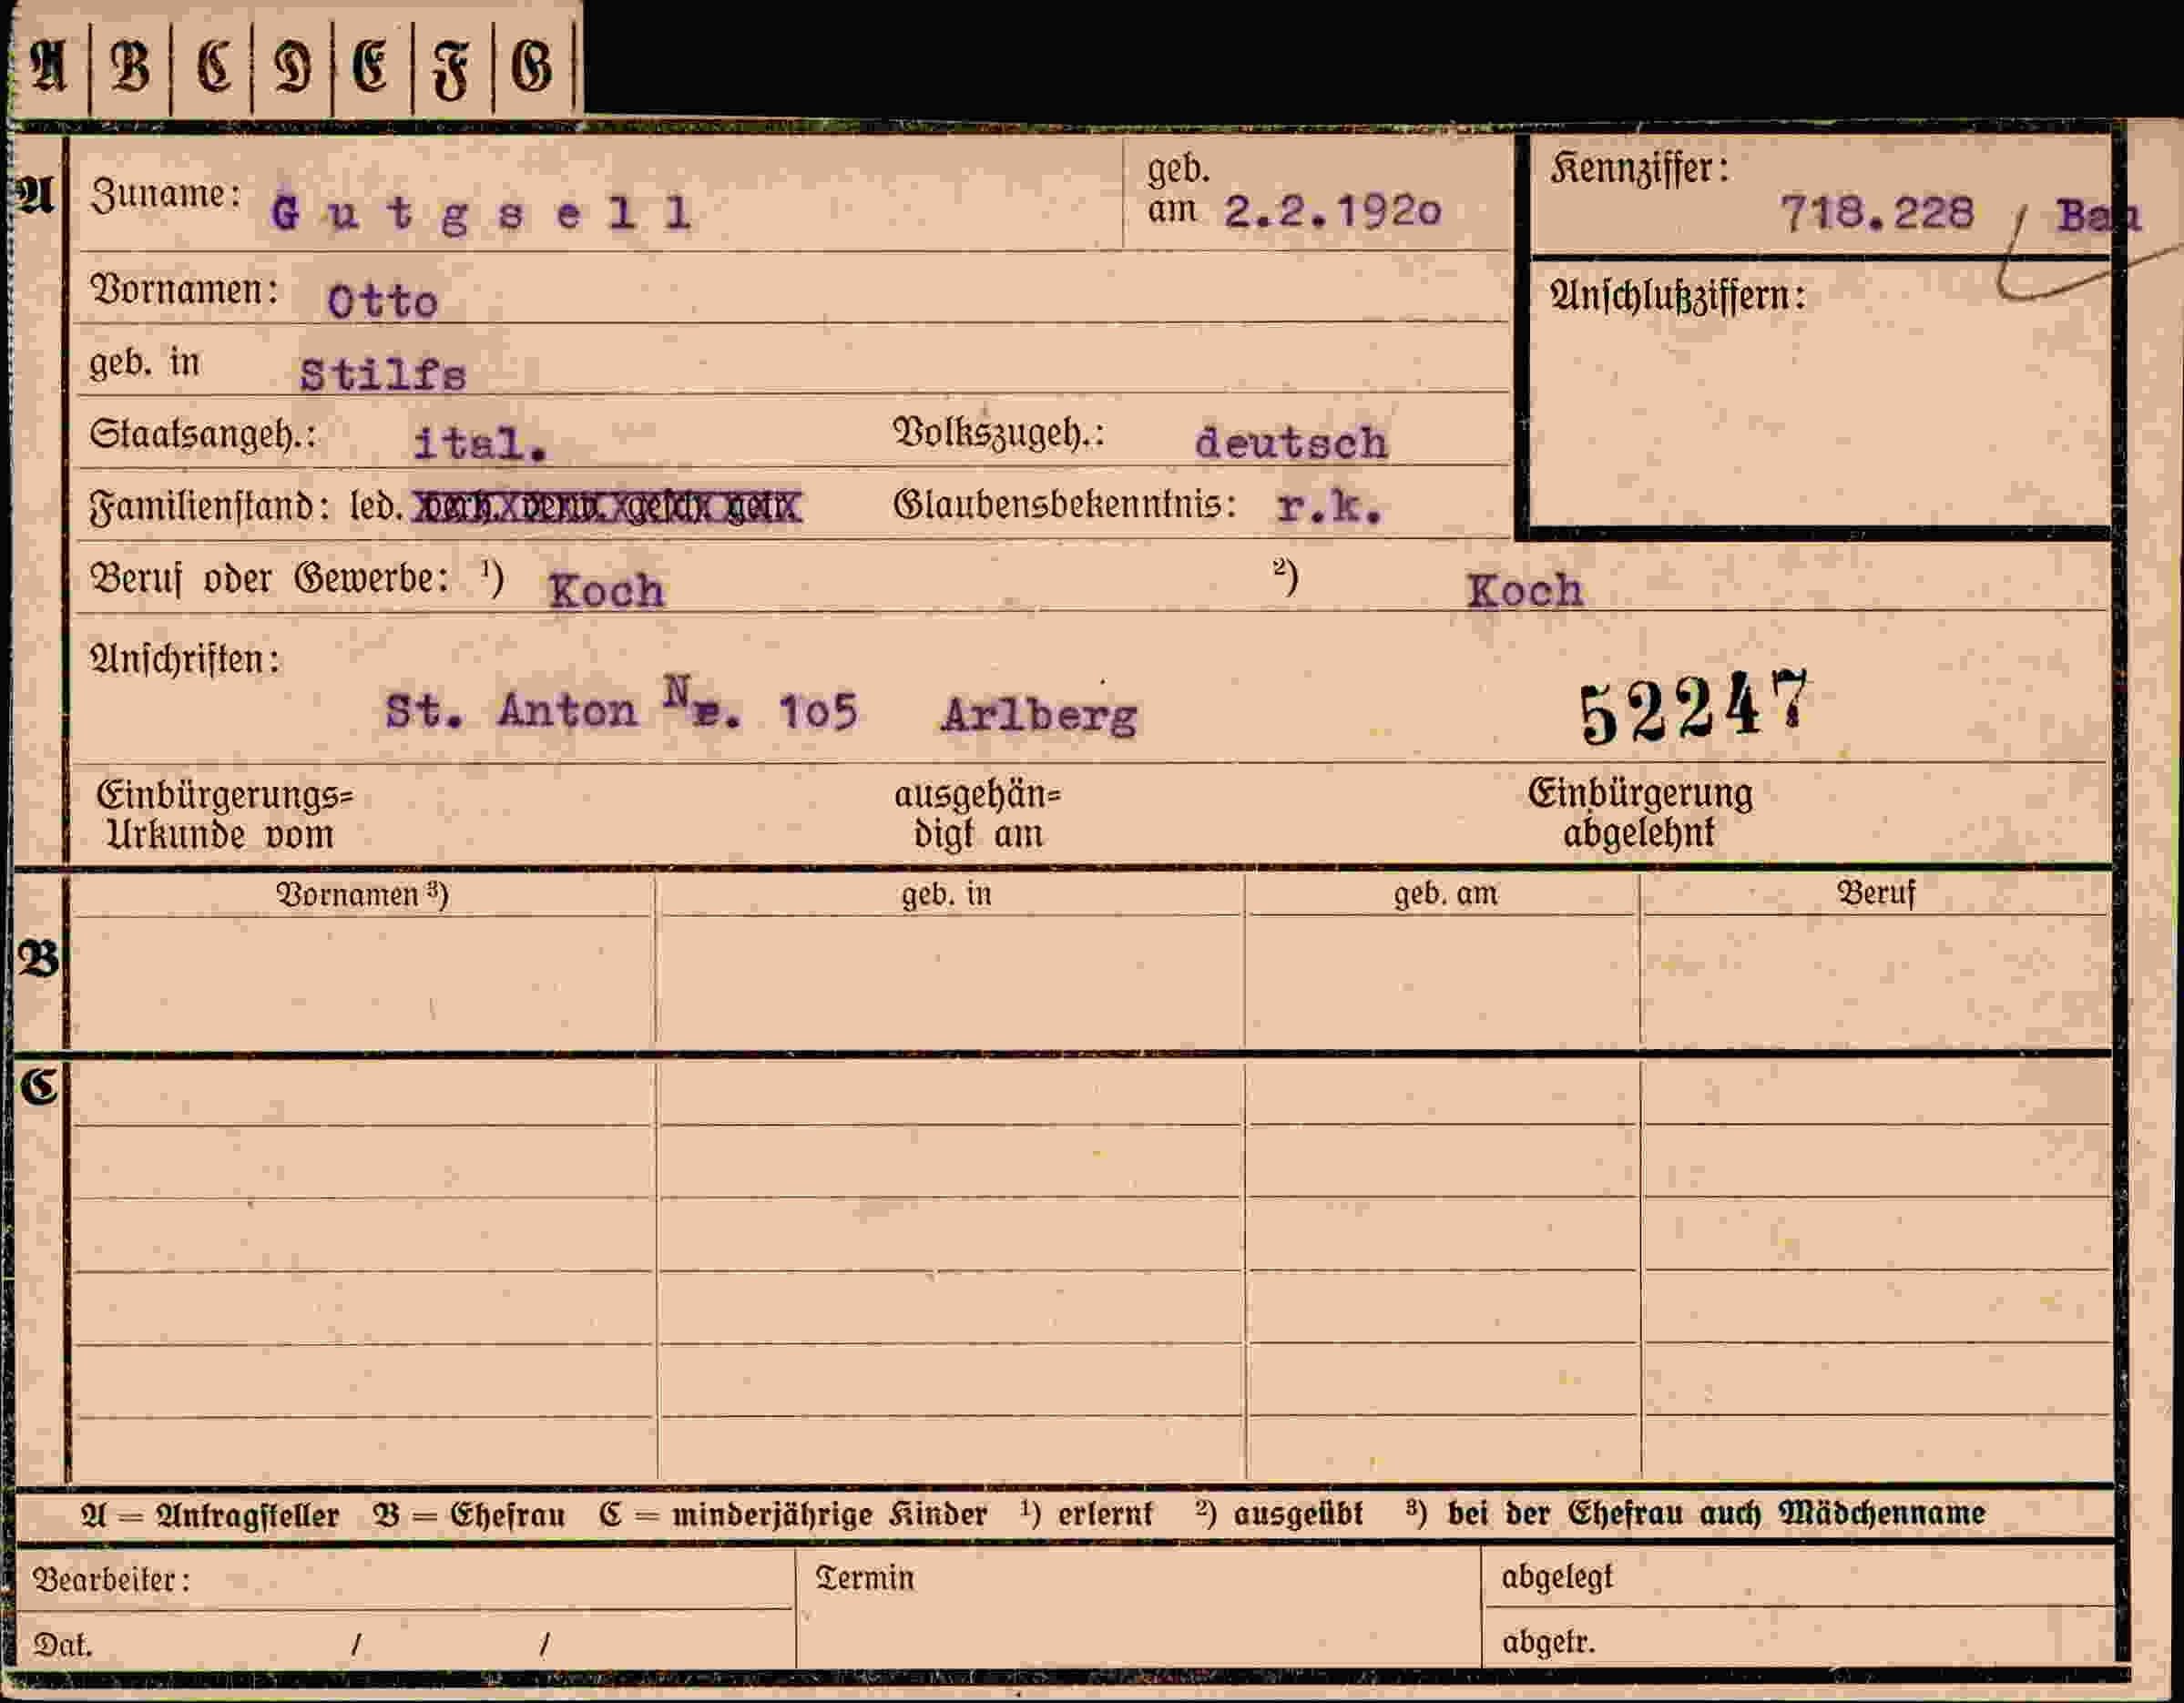 A B C D E F G
A
Zuname: Gutgsell
geb. am 2.2.192o
Kennziffer: 718.228 / Bau
Vornamen: Otto
Anschlußziffern:
geb. in Stilfs
Staatsangeh.: ital. Volkszugeh.: deutsch
Familienstand: led. verh. verw. gesch. getr. Glaubensbekenntnis: r.k.
Beruf oder Gewerbe: ¹) Koch ²) Koch
Anschriften:
St. Anton Nr. 1o5 Arlberg 52247
Einbürgerungs=
Urkunde vom
ausgehän=
digt am
Einbürgerung
abgelehnt
Vornamen ³) geb. in geb. am Beruf
B
C
A = Antragsteller B = Ehefrau C = minderjährige Kinder ¹) erlernt ²) ausgeübt ³) bei der Ehefrau auch Mädchenname
Bearbeiter: Termin abgelegt
Dat. / / abgetr.